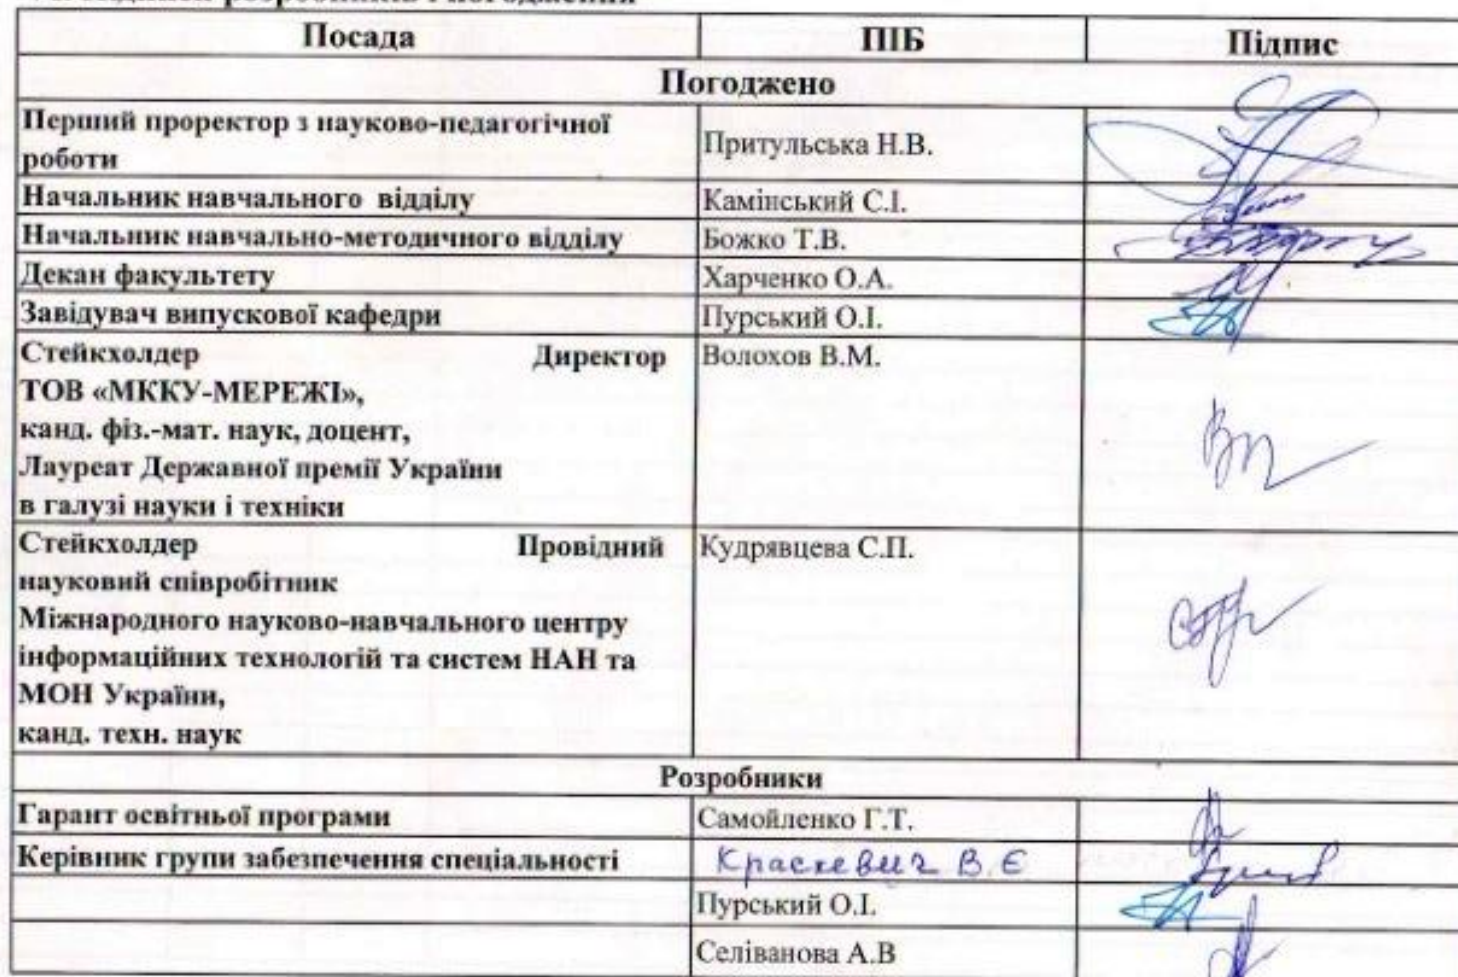 Посада ПІБ Підпис
Погоджено
Перший проректор з науково-педагогічної
роботи
Притульська Н.В.
Начальник навчального відділу Камінський С.І.
Начальник навчально-методичного відділу Божко Т.В.
Декан факультету Харченко О.А.
Завідувач випускової кафедри Пурський О.І.
Стейкхолдер Директор Волохов В.М.
ТОВ «МККУ-МЕРЕЖІ»,
канд. фіз.-мат. наук, доцент,
Лауреат Державної премії України
в галузі науки і техніки
Стейкхолдер Провідний Кудрявцева С.П.
науковий співробітник
Міжнародного науково-навчального центру
інформаційних технологій та систем НАН та
МОН України,
канд. техн. наук
Розробники
Гарант освітньої програми Самойленко Г.Т.
Керівник групи забезпечення спеціальності Краскевич В.Є
Пурський О.І.
Селіванова А.В